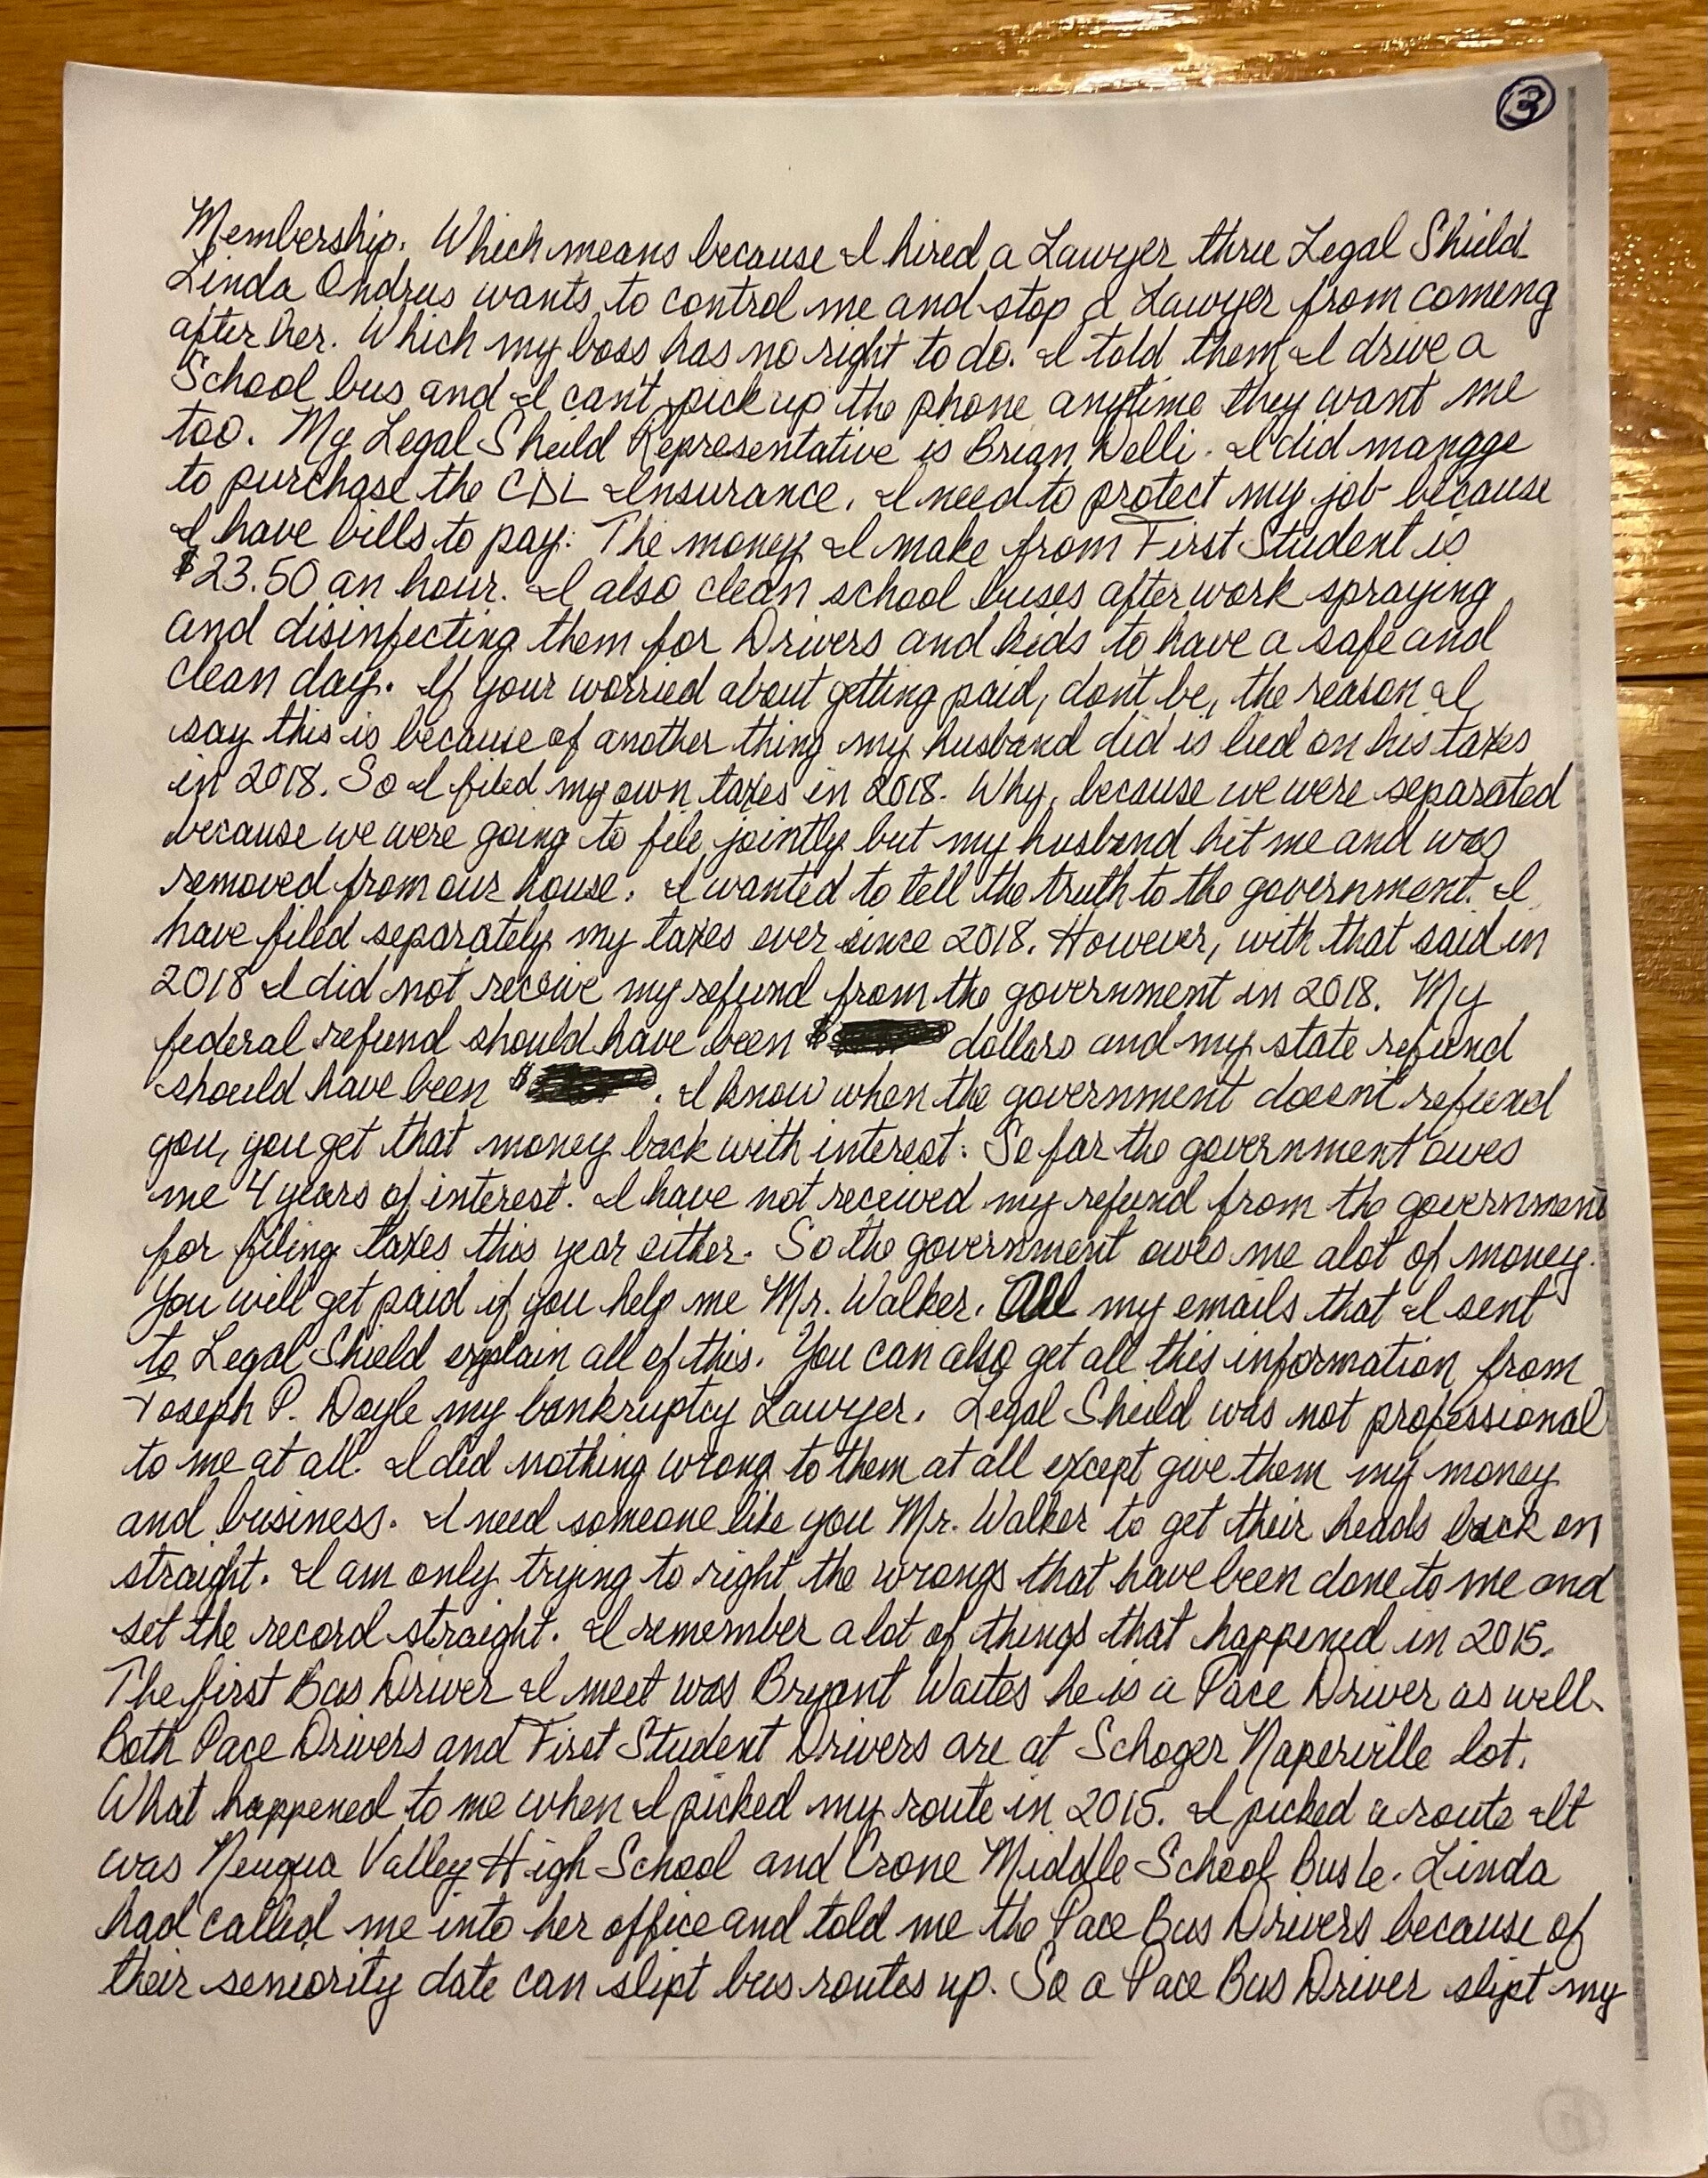 3
Membership. Which means because I hired a Lawyer thru Legal Shield
Linda Ondrus wants to control me and stop a Lawyer from comeng
after her. Which my boss has no right to do. I told them I drive a
School bus and I can't pick up the phone anytime they want me
too. My Legal Sheild Representative is Brian Welli. I did manage
to purchase the CDL Insurance. I need to protect my job because
I have bills to pay. The money I make from First Student is
$23.50 an hour. I also clean school buses after work spraying
and disinfecting them for Drivers and kids to have a safe and
clean day. If your worried about getting paid, don't be, the reason I
say this is because of another thing my husband did is lied on his taxes
in 2018. So I filed my own taxes in 2018. Why, because we were separated
because we were going to file jointly but my husband hit me and was
removed from our house. I wanted to tell the truth to the government. I
have filed separately my taxes ever since 2018. However, with that said in
2018 I did not receive my refund from the government in 2018. My
federal refund should have been $ dollars and my state refund
should have been $ . I know when the government doesn't refund
you, you get that money back with interest. So far the government owes
me 4 years of interest. I have not received my refund from the government
for filing taxes this year either. So the government owes me alot of money.
You will get paid if you help me Mr. Walker. All my emails that I sent
to Legal Shield explain all of this. You can also get all this information from
Joseph P. Doyle my bankruptcy Lawyer. Legal Sheild was not professional
to me at all. I did nothing wrong to them at all except give them my money
and business. I need someone like you Mr. Walker to get their heads back on
straight. I am only trying to right the wrongs that have been done to me and
set the record straight. I remember a lot of things that happened in 2015.
The first Bus Driver I meet was Bryant Waites he is a Pace Driver as well.
Both Pace Drivers and First Student Drivers are at Schoger Naperville lot.
What happened to me when I picked my route in 2015. I picked a route It
was Neuqua Valley High School and Crone Middle School Bus 6. Linda
had called me into her office and told me the Pace Bus Drivers because of
their seniority date can slipt bus routes up. So a Pace Bus Driver slipt my